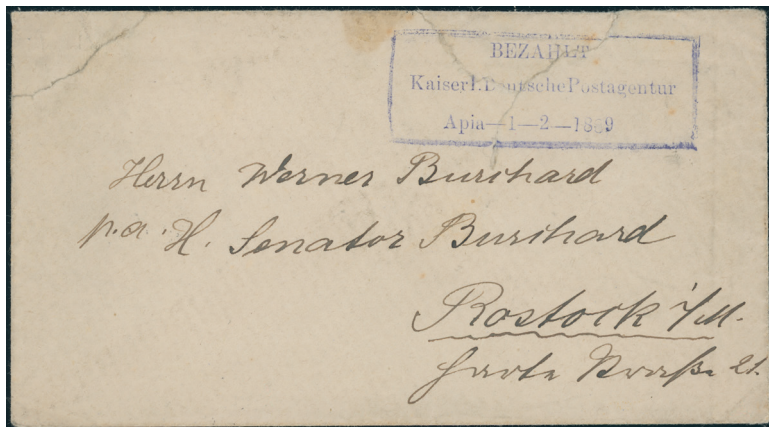 BEZAHLT
Kaiserl. Deutsche Postagentur
Apia—1—2—1889
Herrn Werner Burchard
p. a. H. Senator Burchard
Rostock i/M.
Straße 21.